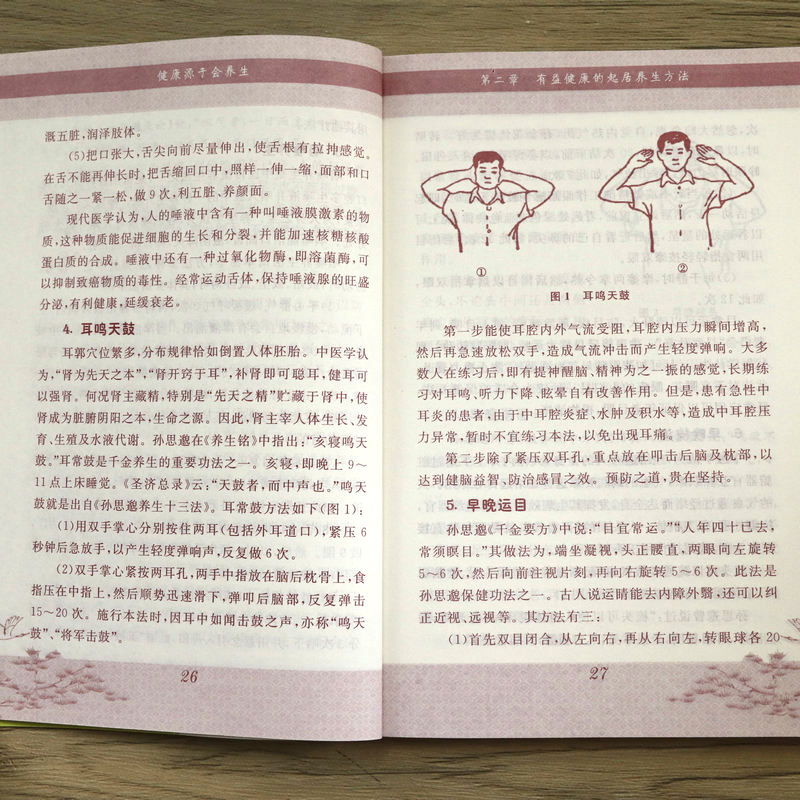 健康源于会养生
溉五脏,润泽肢体。
(5)把口张大,舌尖向前尽量伸出,使舌根有拉抻感觉。
在舌不能再伸长时,把舌缩回口中,照样一伸一缩,面部和口
舌随之一紧一松,做9次,利五脏、养颜面。
现代医学认为,人的唾液中含有一种叫唾液腺激素的物
质,这种物质能促进细胞的生长和分裂,并能加速核糖核酸
蛋白质的合成。唾液中还有一种过氧化物酶,即溶菌酶,可
以抑制致癌物质的毒性。经常运动舌体,保持唾液腺的旺盛
分泌,有利健康,延缓衰老。
4. 耳鸣天鼓
耳郭穴位繁多,分布规律恰如倒置人体胚胎。中医学认
为,“肾为先天之本”,“肾开窍于耳”,补肾即可聪耳,健耳可
以强肾。何况肾主藏精,特别是“先天之精”贮藏于肾中,使
肾成为脏腑阴阳之本,生命之源。因此,肾主宰人体生长、发
育、生殖及水液代谢。孙思邈在《养生铭》中指出:“亥寝鸣天
鼓。”耳常鼓是千金养生的重要功法之一。亥寝,即晚上9~
11点上床睡觉。《圣济总录》云:“天鼓者,而中声也。”鸣天
鼓就是出自《孙思邈养生十三法》。耳常鼓方法如下(图1):
(1)用双手掌心分别按住两耳(包括外耳道口),紧压6
秒钟后急放手,以产生轻度弹响声,反复做6次。
(2)双手掌心紧按两耳孔,两手中指放在脑后枕骨上,食
指压在中指上,然后顺势迅速滑下,弹叩后脑部,反复弹击
15~20次。施行本法时,因耳中如闻击鼓之声,亦称“鸣天
鼓”、“将军击鼓”。
26
第二章 有益健康的起居养生方法
① ②
图1 耳鸣天鼓
第一步能使耳腔内外气流受阻,耳腔内压力瞬间增高,
然后再急速放松双手,造成气流冲击而产生轻度弹响。大多
数人在练习后,即有提神醒脑、精神为之一振的感觉,长期练
习对耳鸣、听力下降、眩晕自有改善作用。但是,患有急性中
耳炎的患者,由于中耳腔炎症、水肿及积水等,造成中耳腔压
力异常,暂时不宜练习本法,以免出现耳痛。
第二步除了紧压双耳孔,重点放在叩击后脑及枕部,以
达到健脑益智、防治感冒之效。预防之道,贵在坚持。
5. 早晚运目
孙思邈《千金要方》中说:“目宜常运。”“人年四十已去,
常须瞑目。”其做法为,端坐凝视,头正腰直,两眼向左旋转
5~6次,然后向前注视片刻,再向右旋转5~6次。此法是
孙思邈保健功法之一。古人说运睛能去内障外翳,还可以纠
正近视、远视等。其方法有三:
(1)首先双目闭合,从左向右,再从右向左,转眼球各20
27